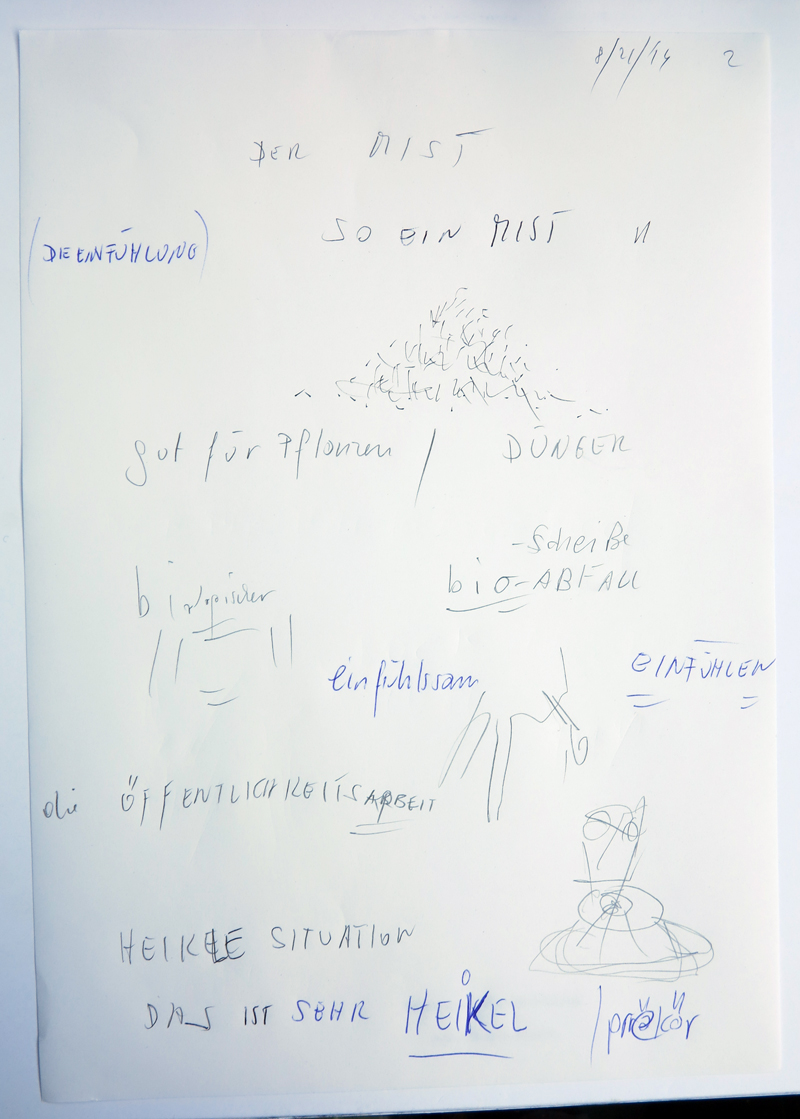 8/21/14 2
DER MIST
SO EIN MIST
(DIE EINFÜHLUNG)
gut für Pflanzen / DÜNGER
-Scheiße
biologischer bio-ABFALL
einfühlssam EINFÜHLEN
die ÖFFENTLICHKEITSARBEIT
HEIKLE SITUATION
DAS IST SEHR HEIKEL /präkär